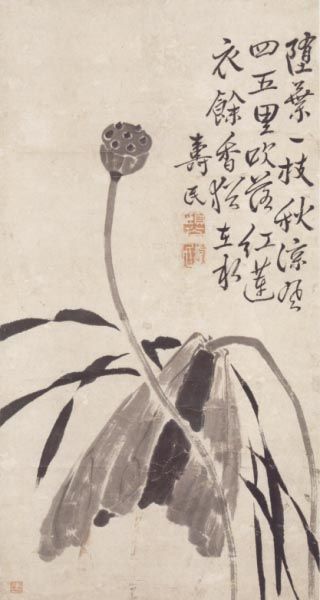 墮葉一枝秋涼風
四五里吹落紅蓮
衣餘香猶在水
壽民